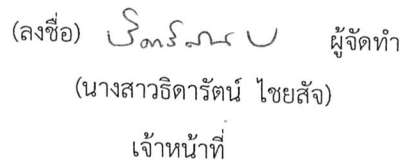 (ลงชื่อ) ผู้จัดทำ
(นางสาวธิดารัตน์ ไชยสัจ)
เจ้าหน้าที่